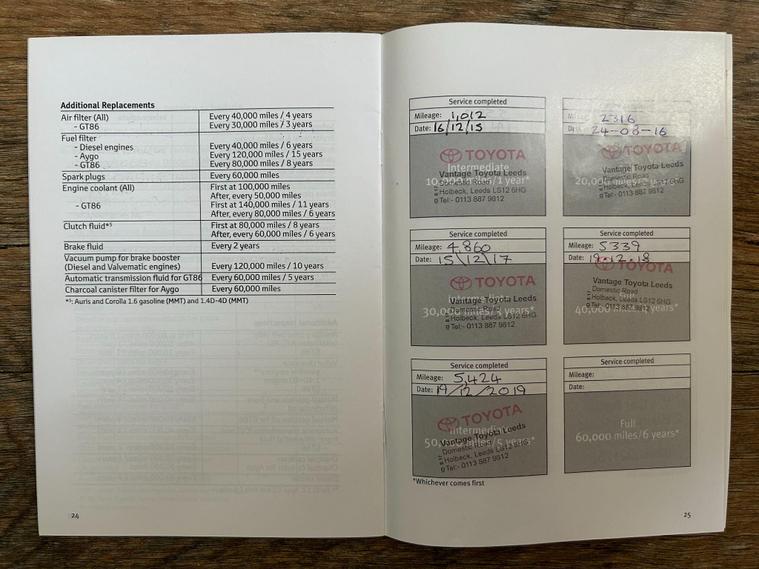 Additional Replacements
Air filter (All) Every 40,000 miles / 4 years
- GT86 Every 30,000 miles / 3 years
Fuel filter
- Diesel engines Every 40,000 miles / 6 years
- Aygo Every 120,000 miles / 15 years
- GT86 Every 80,000 miles / 8 years
Spark plugs Every 60,000 miles
Engine coolant (All) First at 100,000 miles
After, every 50,000 miles
- GT86 First at 140,000 miles / 11 years
After, every 80,000 miles / 6 years
Clutch fluid*⁵ First at 80,000 miles / 8 years
After, every 60,000 miles / 6 years
Brake fluid Every 2 years
Vacuum pump for brake booster
(Diesel and Valvematic engines) Every 120,000 miles / 10 years
Automatic transmission fluid for GT86 Every 60,000 miles / 5 years
Charcoal canister filter for Aygo Every 60,000 miles
*⁵: Auris and Corolla 1.6 gasoline (MMT) and 1.4D-4D (MMT)
24
Service completed
Mileage: 1,012
Date: 16/12/15
TOYOTA
Intermediate
Vantage Toyota Leeds
10,000 miles/1 year*
Domestic Road
Holbeck, Leeds LS12 6HG
Tel:- 0113 887 9812
2316
24-08-16
TOYOTA
Vantage Toyota Leeds
20,000 miles/2 years*
Domestic Road
Holbeck, Leeds LS12 6HG
Tel:- 0113 887 9812
Service completed
Mileage: 4,860
Date: 15\12\17
TOYOTA
Vantage Toyota Leeds
30,000 miles/3 years*
Domestic Road
Holbeck, Leeds LS12 6HG
Tel:- 0113 887 9812
Service completed
Mileage: 5339
Date: 19.12.18
TOYOTA
Vantage Toyota Leeds
Domestic Road
40,000 miles/4 years*
Holbeck, Leeds LS12 6HG
Tel:- 0113 887 9812
Service completed
Mileage: 5,424
Date: 19/12/2019
TOYOTA
Intermediate
Vantage Toyota Leeds
50,000 miles/5 years*
Domestic Road
Holbeck, Leeds LS12 6HG
Tel:- 0113 887 9812
Service completed
Mileage:
Date:
Full
60,000 miles/6 years*
*Whichever comes first
25